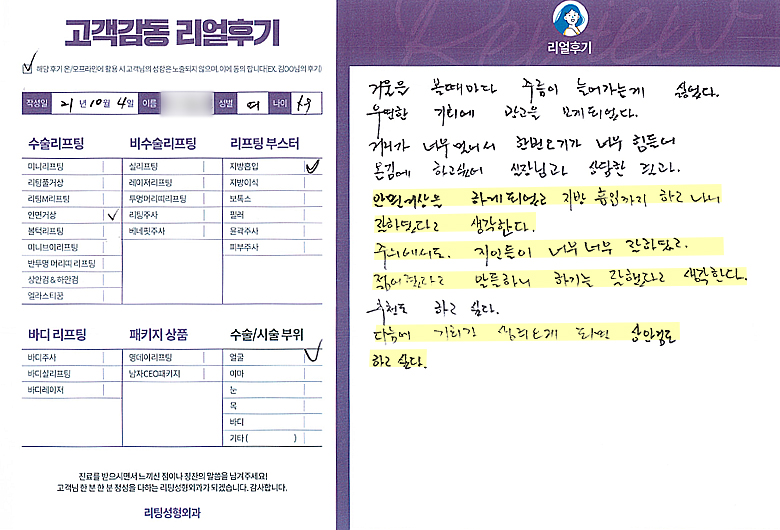 고객감동 리얼후기
해당 후기 온/오프라인에 활용 시 고객님의 성함은 노출되지 않으며, 이에 동의 합니다(EX. 김OO님의 후기)
작성일 21년 10월 4일 이름 성별 여 나이
수술리프팅
미니리프팅
리팅풀거상
리팅M리프팅
안면거상
봄턱리프팅
미니브이리프팅
반투명 머리띠 리프팅
상안검 & 하안검
얼라스티꿈
비수술리프팅
실리프팅
레이저리프팅
투명머리띠리프팅
리팅주사
베네핏주사
리프팅 부스터
지방흡입
지방이식
보톡스
필러
윤곽주사
피부주사
바디 리프팅
바디주사
바디실리프팅
바디레이저
패키지 상품
영데이리프팅
남자CEO패키지
수술/시술 부위
얼굴
이마
눈
목
바디
기타 ( )
진료를 받으시면서 느끼신 점이나 칭찬의 말씀을 남겨주세요!
고객님 한 분 한 분 정성을 다하는 리팅성형외과가 되겠습니다. 감사합니다.
리팅성형외과
Review
리얼후기
거울을 볼때마다 주름이 늘어가는게 싫었다.
우연한 기회에 광고를 보게되었다.
거리가 너무 멀어서 한번오기가 너무 힘들어
온김에 하고싶어 원장님과 상담한 결과.
안면거상을 하게되었고 지방 흡입까지 하고 나니
잘하였다고 생각한다.
주위에서도. 지인들이 너무 너무 잘하였고.
젊어졌다고 만족하니 하기는 잘했다고 생각한다.
추천도 하고 싶다.
다음에 기회가 있게 되면 상안검도
하고 싶다.